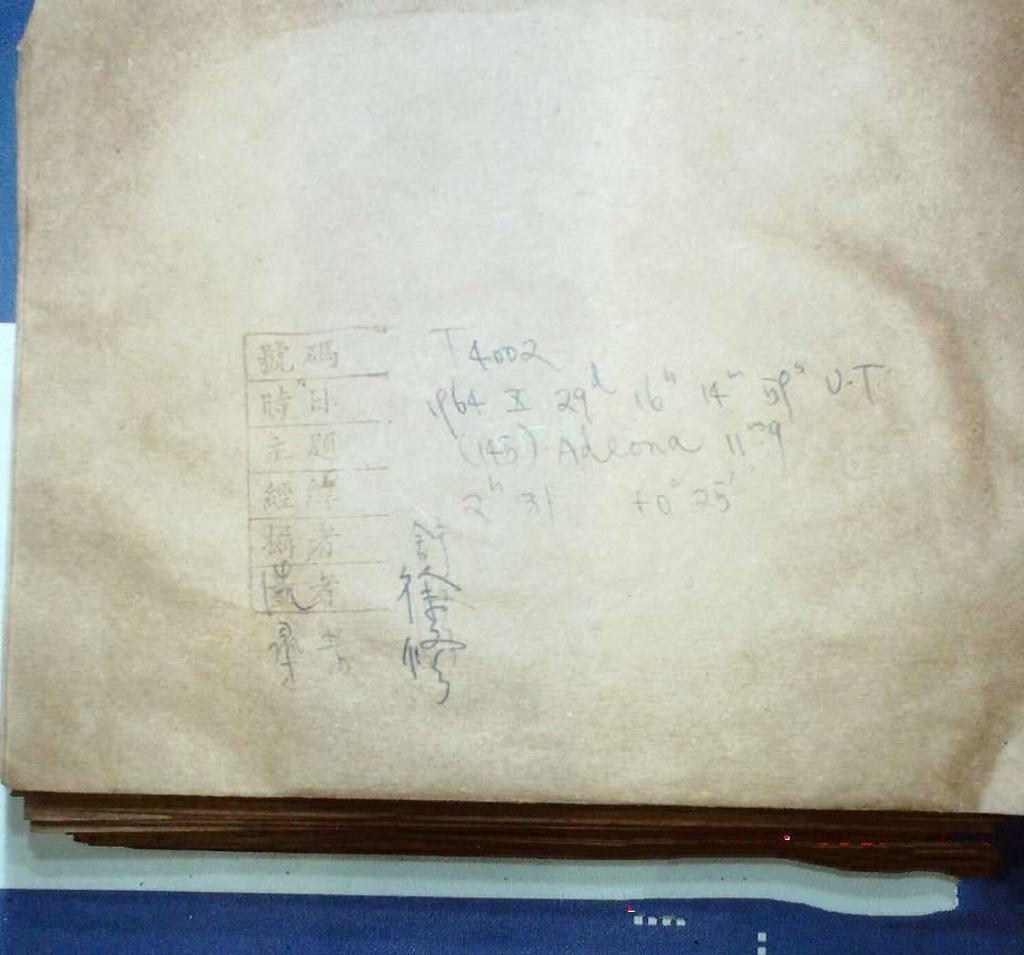 號碼 T 4002
時日 1964 X 29ᵈ 16ʰ 14ᵐ 59ˢ U.T
主題 (145) Adeona 11ᵐ.9
經緯 2ʰ 31 +0° 25'
攝者
者 徐